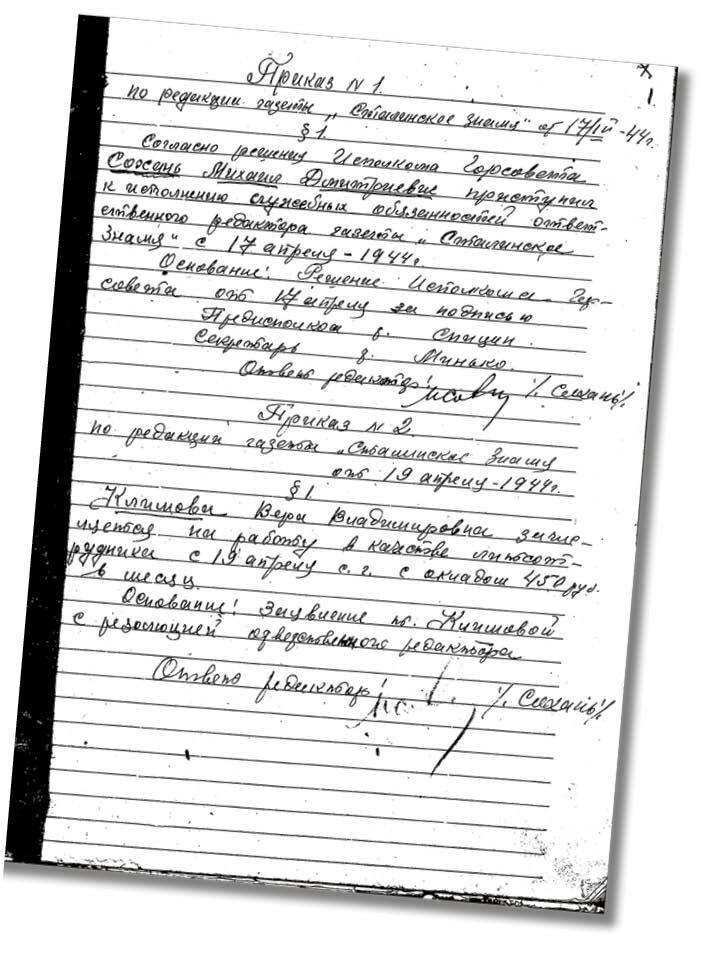 7
1.
Приказ N 1.
по редакции газеты „Сталинское знамя" от 17/IV-44г.
§ 1.
Согласно решения Исполкома Горсовета
Сохань Михаил Дмитриевич приступил
к исполнению служебных обязанностей ответ-
ственного редактора газеты „Сталинское
Знамя" с 17 апреля-1944г.
Основание: Решение Исполкома Гор-
совета от 17 апреля за подписью
Предисполком т. Спицин.
Секретарь т. Минько.
Ответ редактор: /. Сохань/.
Приказ N 2.
по редакции газеты „Сталинское Знамя
от 19 апреля-1944г.
§ 1.
Климова Вера Владимировна зачис-
ляется на работу в качестве литсот-
рудника с 19 апреля с.г. с окладом 450 руб.
в месяц.
Основание: Заявление т. Климовой
с резолюцией ответственного редактора
Ответ редактор: /. Сохань/.